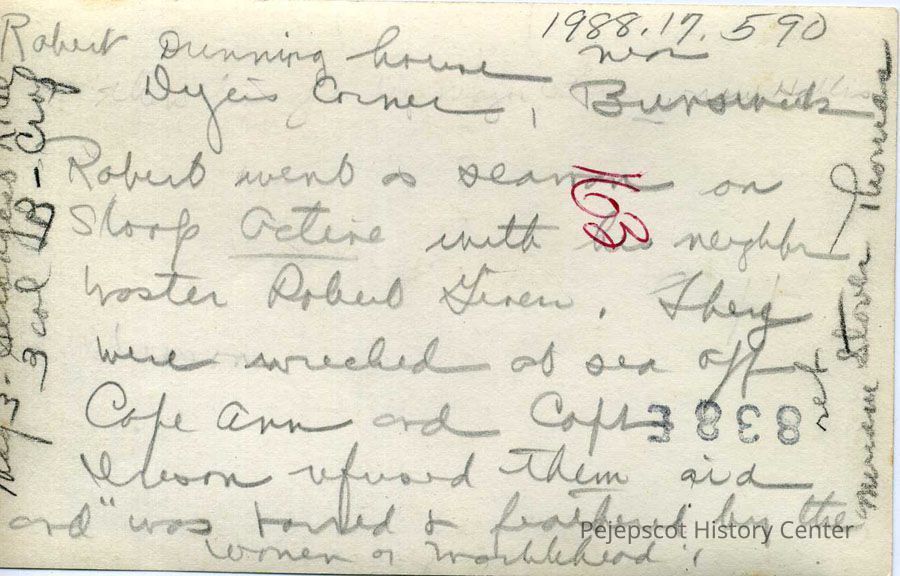 1988.17.590
Robert Dunning house near
Dyers Corner, Brunswick
Robert went as seaman on
Sloop Active with his neighbor
Master Robert Given. They
were wrecked at sea off
Cape Ann and Capt
Ireson refused them aid
and "was tarred & feathered by the
women of Marblehead".
163
838E
ret
Miriam Stover Thomas
May 3-
3 col
Pejepscot History Center